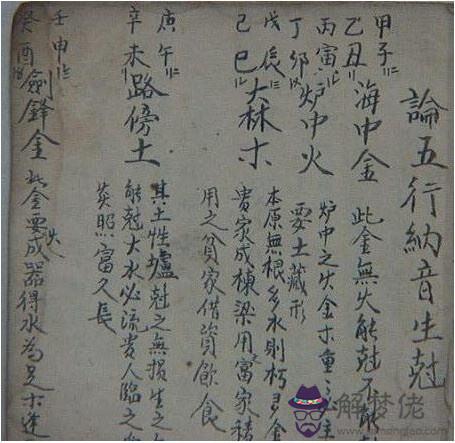 論五行納音生尅
甲子
乙丑 海中金 此金無火能尅
丙寅
丁卯 炉中火 炉中之火金木重
要土藏形
戊辰
己巳 大林木 本原無根多水則朽
貴家成棟梁用富家積
用之貧家借資飲食
庚午
辛未 路傍土 其土性壚尅之無損生之
能尅大水必流貴人臨之
英照富久長
壬申
癸酉 劍鋒金 此金要火成器得水為足木逢
解梦佬